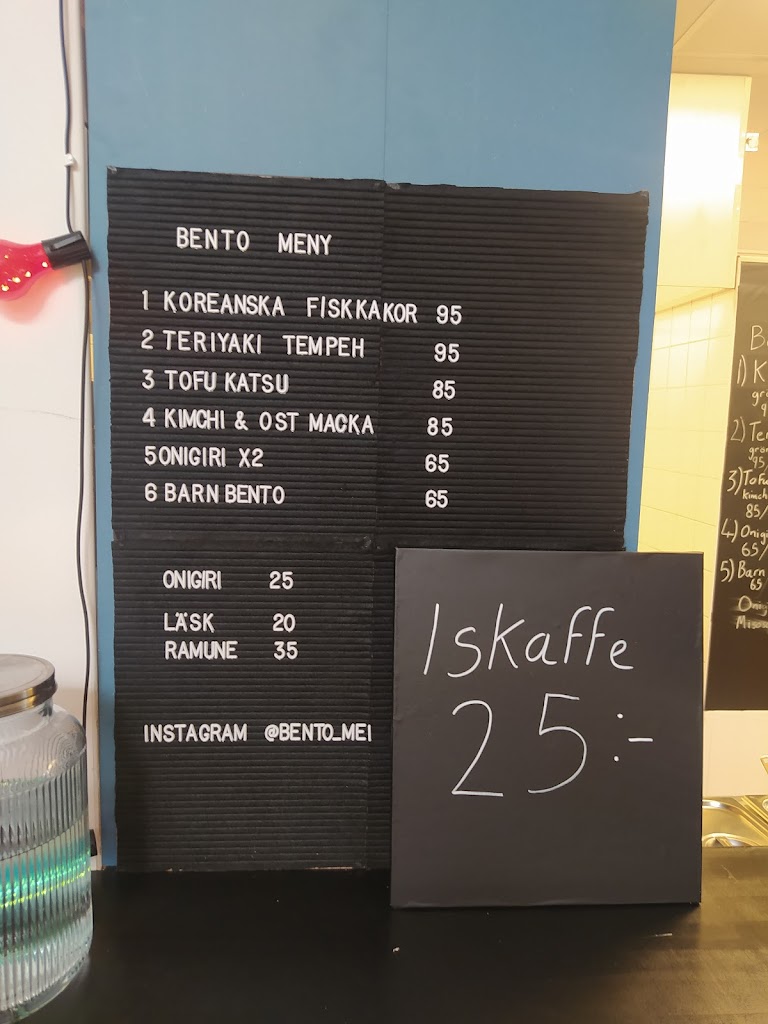 BENTO MENY
1 KOREANSKA FISKKAKOR 95
2 TERIYAKI TEMPEH 95
3 TOFU KATSU 85
4 KIMCHI & OST MACKA 85
5 ONIGIRI X2 65
6 BARN BENTO 65
ONIGIRI 25
LÄSK 20
RAMUNE 35
INSTAGRAM @BENTO_MEI
Iskaffe
25:-
1) K
2) Te
3) Tofu
kimch
85/
4) Onigi
65/
5) Barn
65